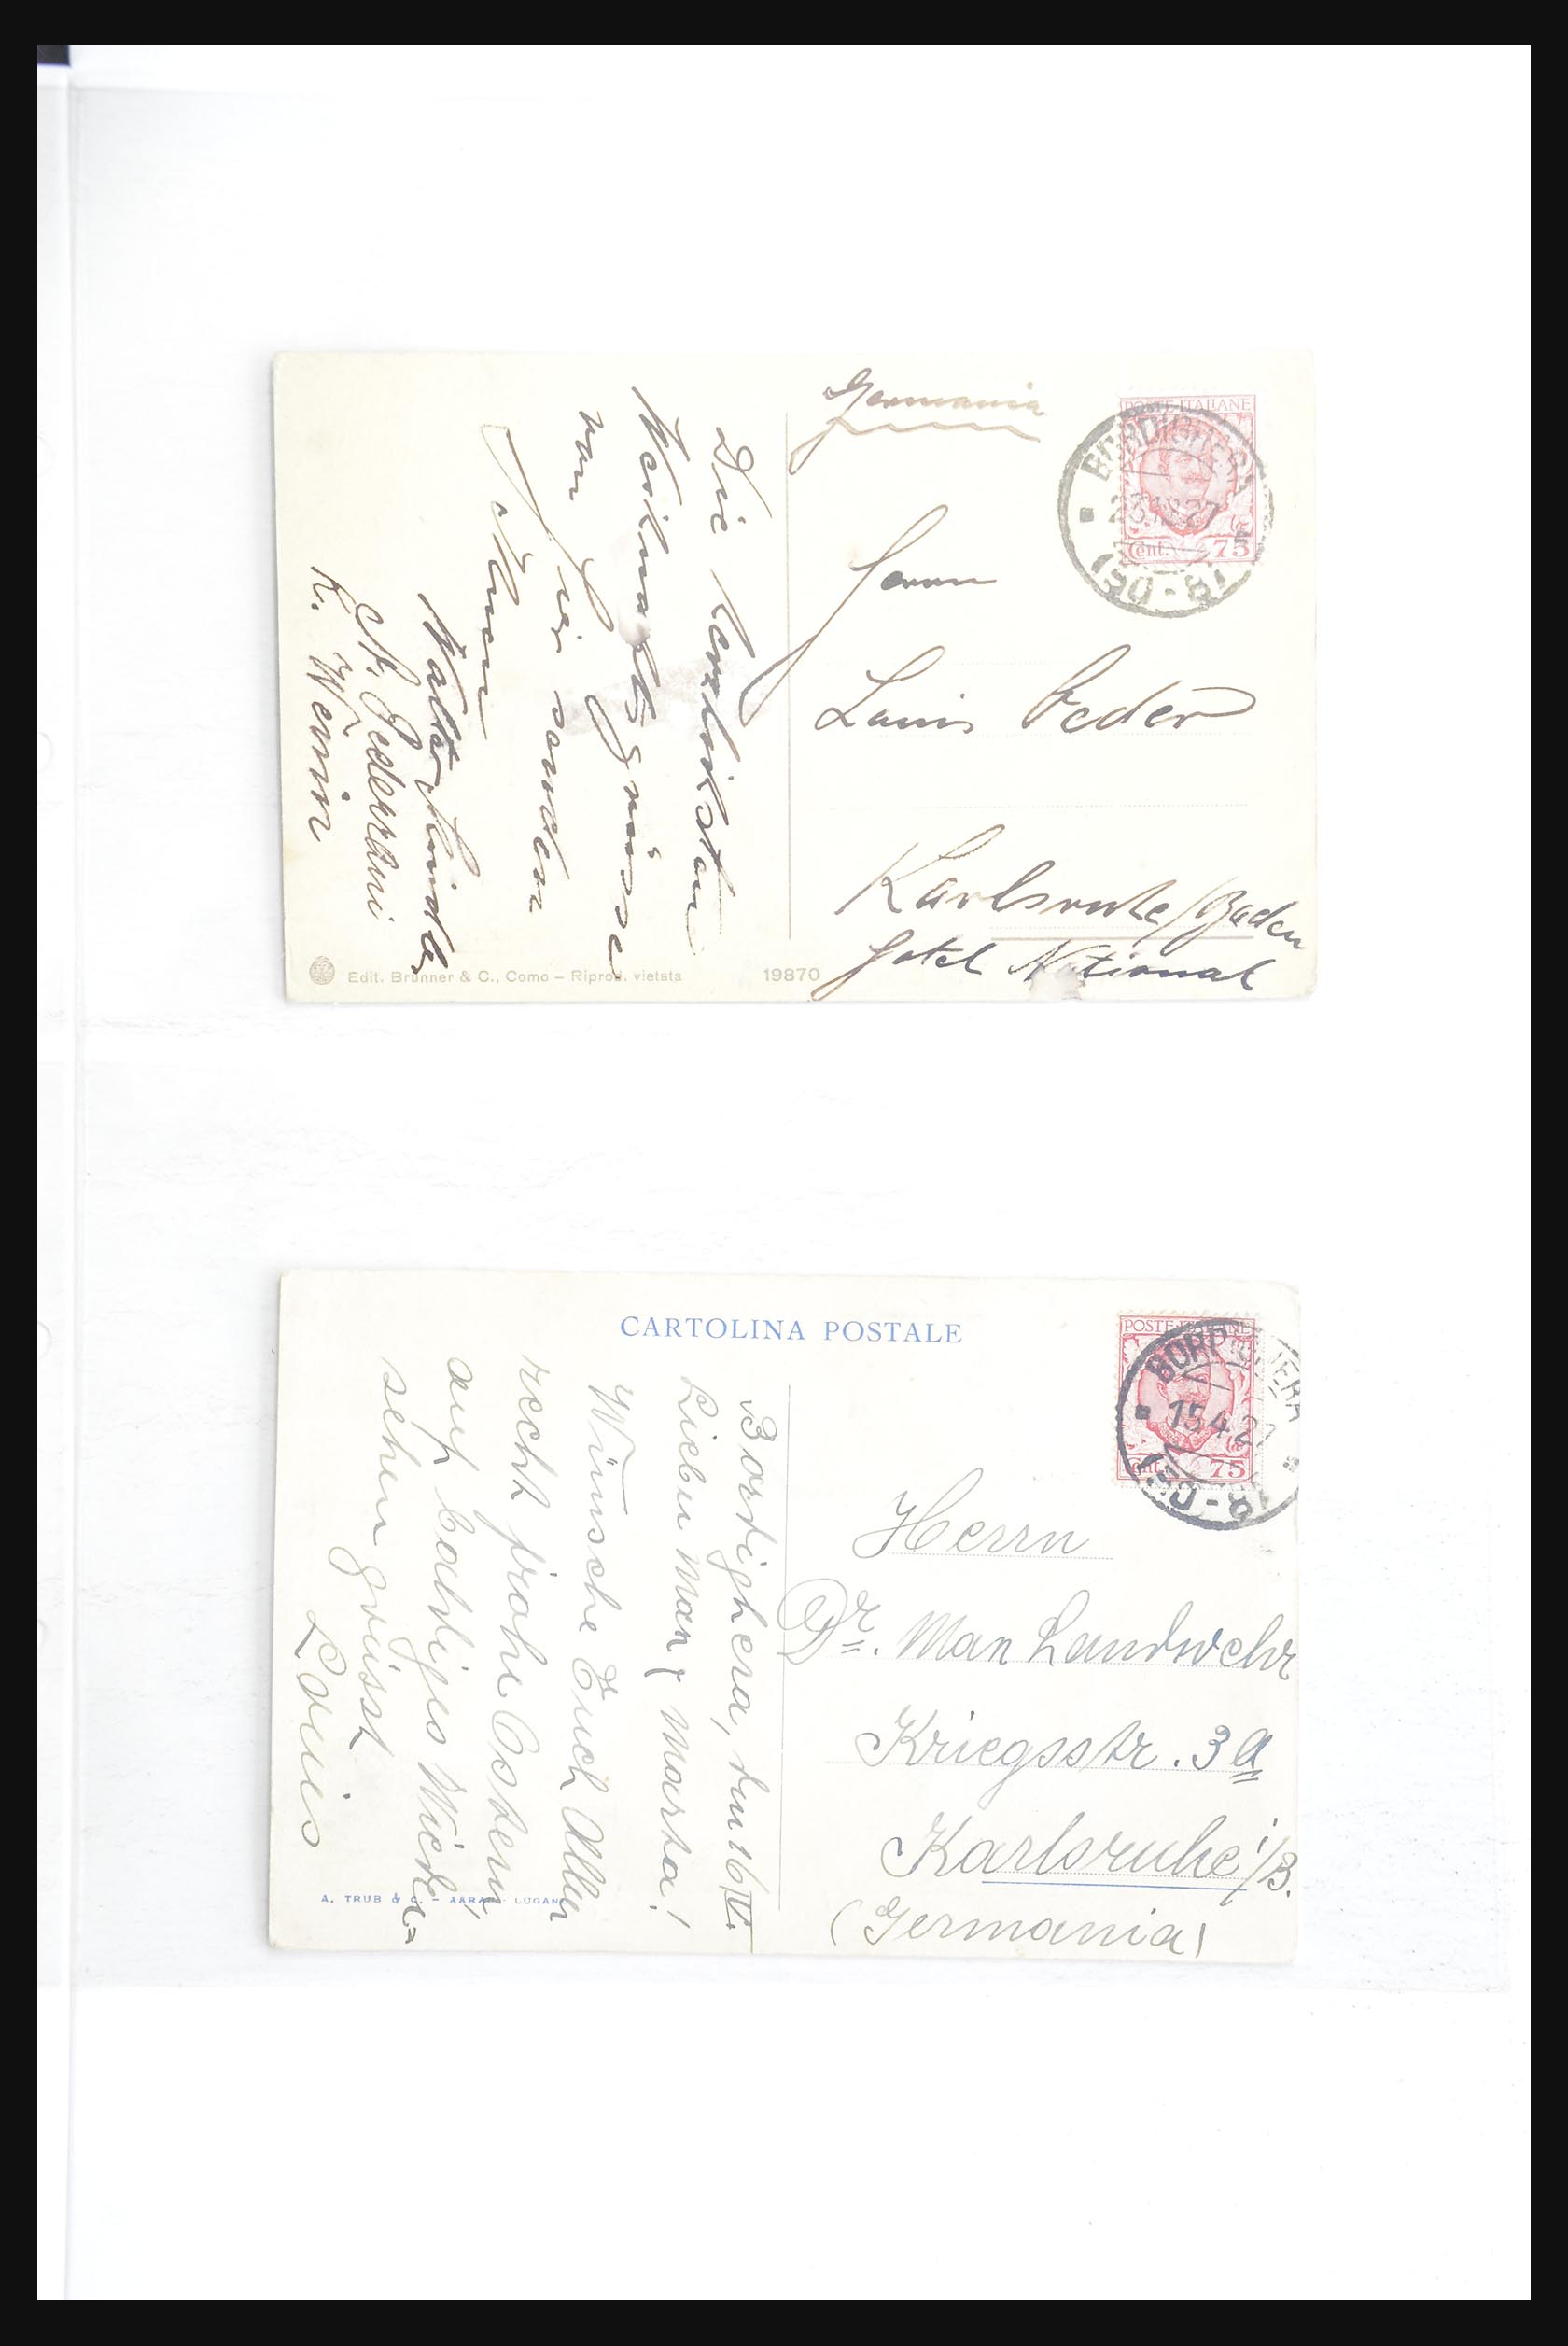 Germania
POSTE ITALIANE
BORDIGHERA
23.12.27
Cent. 75
Herrn
Louis Feder
Karlsruhe/Baden
Hotel National
Die herzlichsten
Weihnachtsgrüsse
von hier senden
Ihnen
Walter
R. Wenin
Edit. Brunner & C., Como – Riprod. vietata
19870
CARTOLINA POSTALE
POSTE ITALIANE
BORDIGHERA
15.4.27
Cent. 75
Herrn
Dr. Max Landwehr
Kriegsstr. 3a
Karlsruhe i/B.
(Germania)
Bordighera, den 16 IV.
Lieber Max, Marta!
Wünsche Euch Allen
recht frohe Ostern,
auf baldiges Wieder=
sehen grüsst
Louis
A. TRUB & C. – AARAU – LUGANO